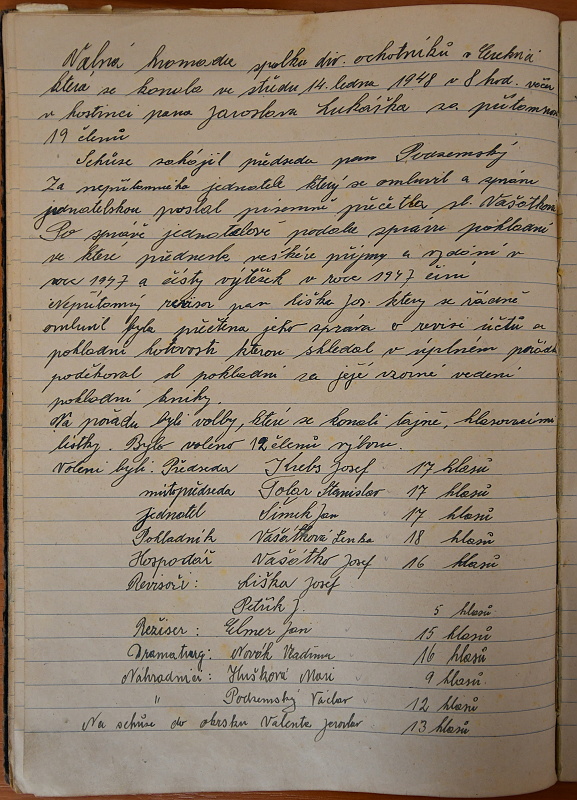 Valná hromada spolku div. ochotníků v Cerekvici
která se konala ve středu 14. ledna 1948 v 8 hod. večer
v hostinci pana Jaroslava Lukáška za přítomnosti
19 členů
Schůse zahájil předseda pan Podzemský
Za nepřítomného jednatele který se omluvil a zprávu
jednatelskou poslal písemně přečetla sl. Vašátkova
Po zprávě jednatelově podala zprávu pokladní
ve které přednesla veškeré příjmy a vydání v
roce 1947 a čistý výtěžek v roce 1947 činí
Nepřítomný revisor pan Liška Jos. který se řádně
omluvil byla přečtena jeho zpráva o revisi účtů a
pokladní hotovosti kterou shledal v úplném pořádku
poděkoval sl pokladní za její vzorné vedení
pokladní knihy.
Na pořadu byli volby, které se konali tajně, hlasovacími
lístky. Bylo voleno 12 členů výboru.
Voleni byli: Předseda Krebs Josef 17 hlasů
místopředseda Golar Stanislav 17 hlasů
jednatel Šimek Jan 17 hlasů
Pokladník Vašátkova Lenka 18 hlasů
Hospodář Vašátko Josef 16 hlasů
Revisoři: Liška Josef
Petřík J. 5 hlasů
Režiser: Elmer Jan 15 hlasů
Dramaturg: Novák Vladimír 16 hlasů
Náhradníci: Hušková Mari 9 hlasů.
" Podzemský Václav 12 hlasů
Na schůse do okrsku Valenta Jaroslav 13 hlasů